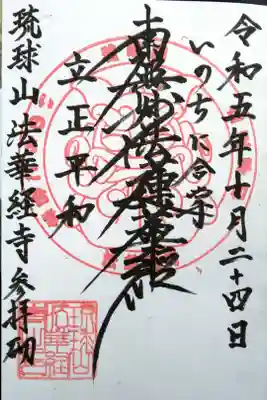 令和五年十月二十四日
いのちに合掌
南無妙法蓮華経
立正平和
琉球山法華経寺参拝砌